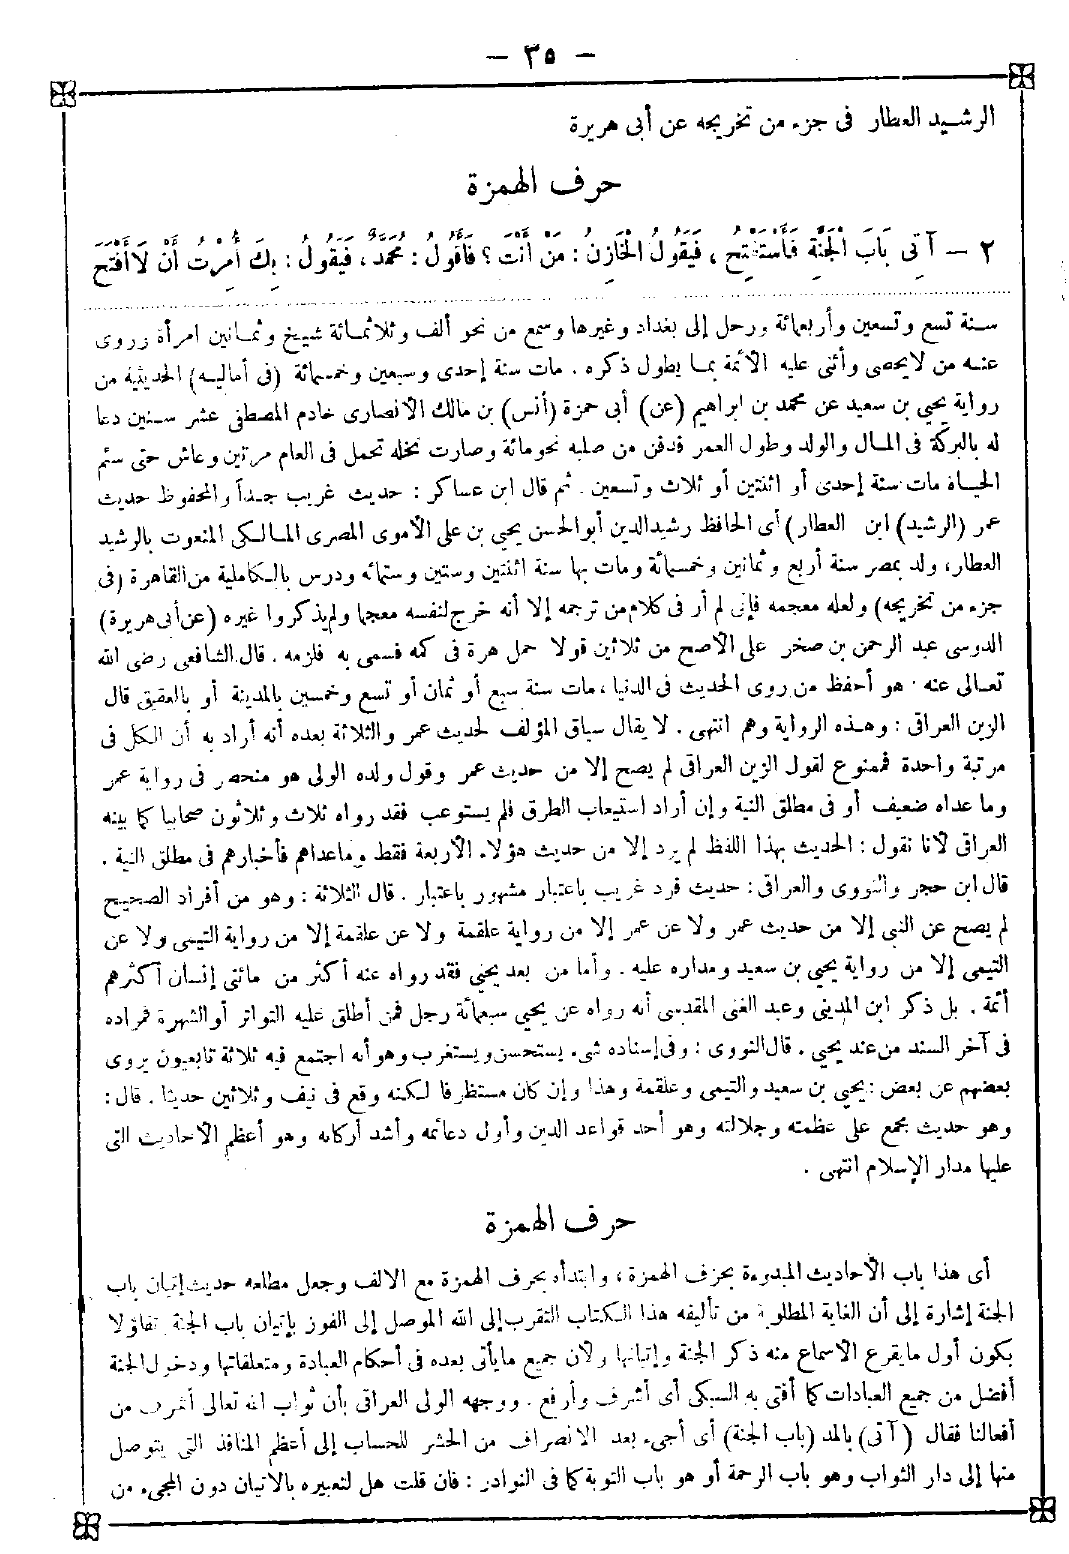 – ٣٥ –
الرشيد العطار فى جزء من تخريجه عن أبى هريرة
حرف الهمزة
٢ – آتِى بَابَ الْجَنَّةِ فَأَسْتَفْتِحُ ، فَيَقُولُ الْخَازِنُ : مَنْ أَنْتَ ؟ فَأَقُولُ : مُحَمَّدٌ ، فَيَقُولُ : بِكَ أُمِرْتُ أَنْ لاَ أَفْتَحَ
سنة تسع وتسعين وأربعمائة ورحل إلى بغداد وغيرها وسمع من نحو ألف وثلاثمائة شيخ وثمانين امرأة وروى
عنه من لا يحصى وأثنى عليه الأئمة بما يطول ذكره . مات سنة إحدى وسبعين وخمسمائة (فى أماليه) الحديثية من
رواية يحيى بن سعيد عن محمد بن ابراهيم (عن) أبى حمزة (أنس) بن مالك الأنصارى خادم المصطفى عشر سنين دعا
له بالبركة فى المال والولد وطول العمر فدفن من صلبه نحو مائة وصارت نخله تحمل فى العام مرتين وعاش حتى سئم
الحياة مات سنة إحدى أو اثنتين أو ثلاث وتسعين . ثم قال ابن عساكر : حديث غريب جداً والمحفوظ حديث
عمر (الرشيد) ابن العطار) أى الحافظ رشيد الدين أبو الحسن يحيى بن على الأموى المصرى المالكى المنعوت بالرشيد
العطار، ولد بمصر سنة أربع وثمانين وخمسمائة ومات بها سنة اثنتين وستين وستمائه ودرس بالكاملية من القاهرة (فى
جزء من تخريجه) ولعله معجمه فإنى لم أر فى كلام من ترجمه إلا أنه خرج لنفسه معجما ولم يذكروا غيره (عن أبى هريرة)
الدوسى عبد الرحمن بن صخر على الأصح من ثلاثين قولا حمل هرة فى كمه فسمى به فلزمه . قال الشافعى رضى الله
تعالى عنه : هو أحفظ من روى الحديث فى الدنيا ، مات سنة سبع أو ثمان أو تسع وخمسين بالمدينة أو بالعقيق قال
الزين العراقى : وهذه الرواية وهم انتهى . لا يقال سياق المؤلف لحديث عمر والثلاثة بعده أنه أراد به أن الكل فى
مرتبة واحدة فممنوع لقول الزين العراقى لم يصح إلا من حديث عمر وقول ولده الولى هو منحصر فى رواية عمر
وما عداه ضعيف أو فى مطلق النية وإن أراد استيعاب الطرق فلم يستوعب فقد رواه ثلاث وثلاثون صحابيا كما بينه
العراقى لأنا نقول : الحديث بهذا اللفظ لم يرد إلا من حديث هؤلاء الأربعة فقط وما عداهم فأخبارهم فى مطلق النية .
قال ابن حجر والنووى والعراقى : حديث فرد غريب باعتبار مشهور باعتبار . قال الثلاثة : وهو من أفراد الصحيح
لم يصح عن النبى إلا من حديث عمر ولا عن عمر إلا من رواية علقمة ولا عن علقمة إلا من رواية التيمى ولا عن
التيمى إلا من رواية يحيى بن سعيد ومداره عليه . وأما من بعد يحيى فقد رواه عنه أكثر من مائتى إنسان أكثرهم
أئمة . بل ذكر ابن المدينى وعبد الغنى المقدسى أنه رواه عن يحيى سبعمائة رجل فمن أطلق عليه التواتر أو الشهرة فمراده
فى آخر السند من عند يحيى . قال النووى : وفى إسناده شىء يستحسن ويستغرب وهو أنه اجتمع فيه ثلاثة تابعيون يروى
بعضهم عن بعض : يحيى بن سعيد والتيمى وعلقمة وهذا وإن كان مستظرفا لكنه وقع فى نيف وثلاثين حديثا . قال :
وهو حديث مجمع على عظمته وجلالته وهو أحد قواعد الدين وأول دعائمه وأشد أركانه وهو أعظم الأحاديث التى
عليها مدار الإسلام انتهى .
حرف الهمزة
أى هذا باب الأحاديث المبدوءة بحرف الهمزة ، وابتدأه بحرف الهمزة مع الالف وجعل مطلعه حديث إتيان باب
الجنة إشارة إلى أن الغاية المطلوبة من تأليفه هذا الكتاب التقرب إلى الله الموصل إلى الفوز بإتيان باب الجنة تفاؤلا
بكون أول ما يقرع الأسماع منه ذكر الجنة وإتيانها ولأن جميع ما يأتى بعده فى أحكام العبادة ومتعلقاتها ودخول الجنة
أفضل من جميع العبادات كما أفتى به السبكى أى أشرف وأرفع . ووجهه الولى العراقى بأن ثواب الله تعالى أشرف من
أفعالنا فقال (آتى) بالمد (باب الجنة) أى أجىء بعد الانصراف من الحشر للحساب إلى أعظم المنافذ التى يتوصل
منها إلى دار الثواب وهو باب الرحمة أو هو باب التوبة كما فى النوادر : فان قلت هل لتعبيره بالاتيان دون المجىء من